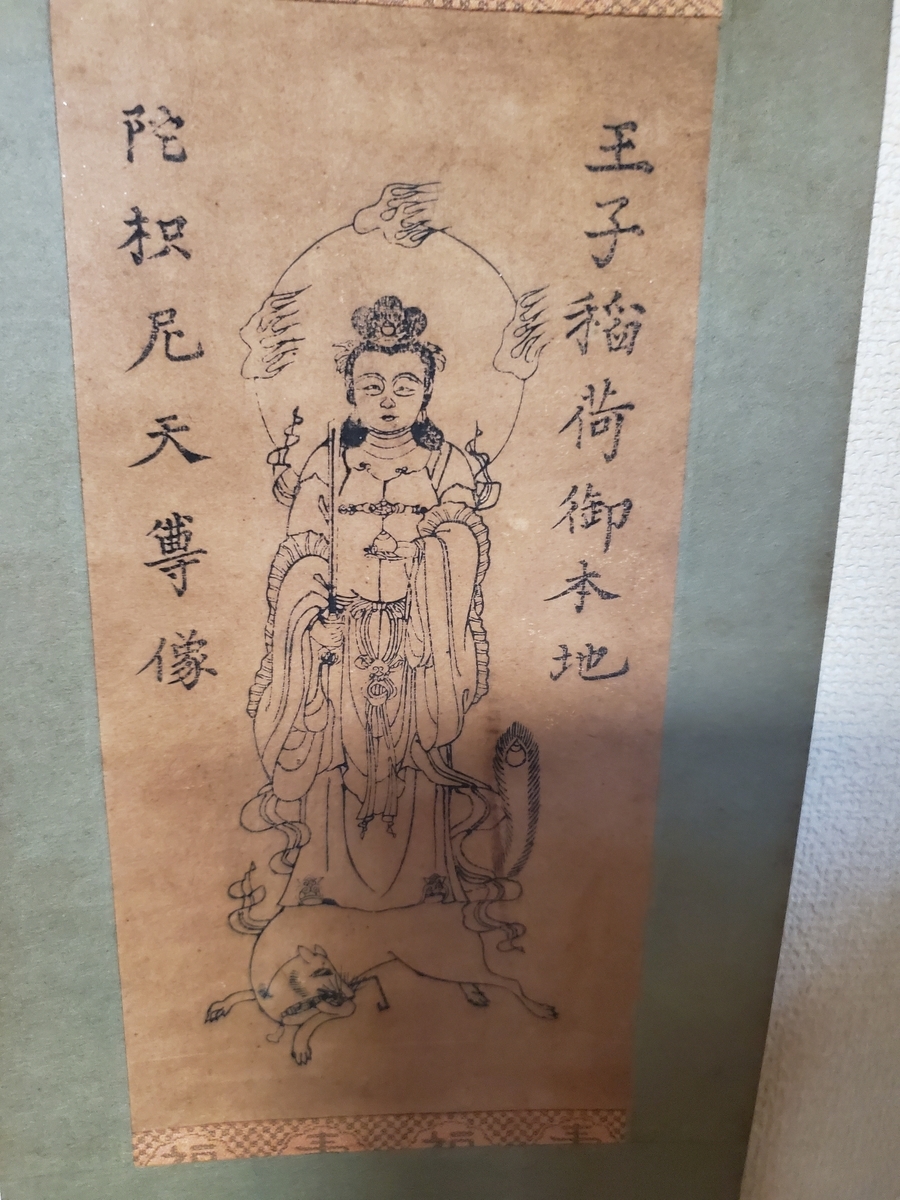 王子稲荷御本地
陀枳尼天尊像